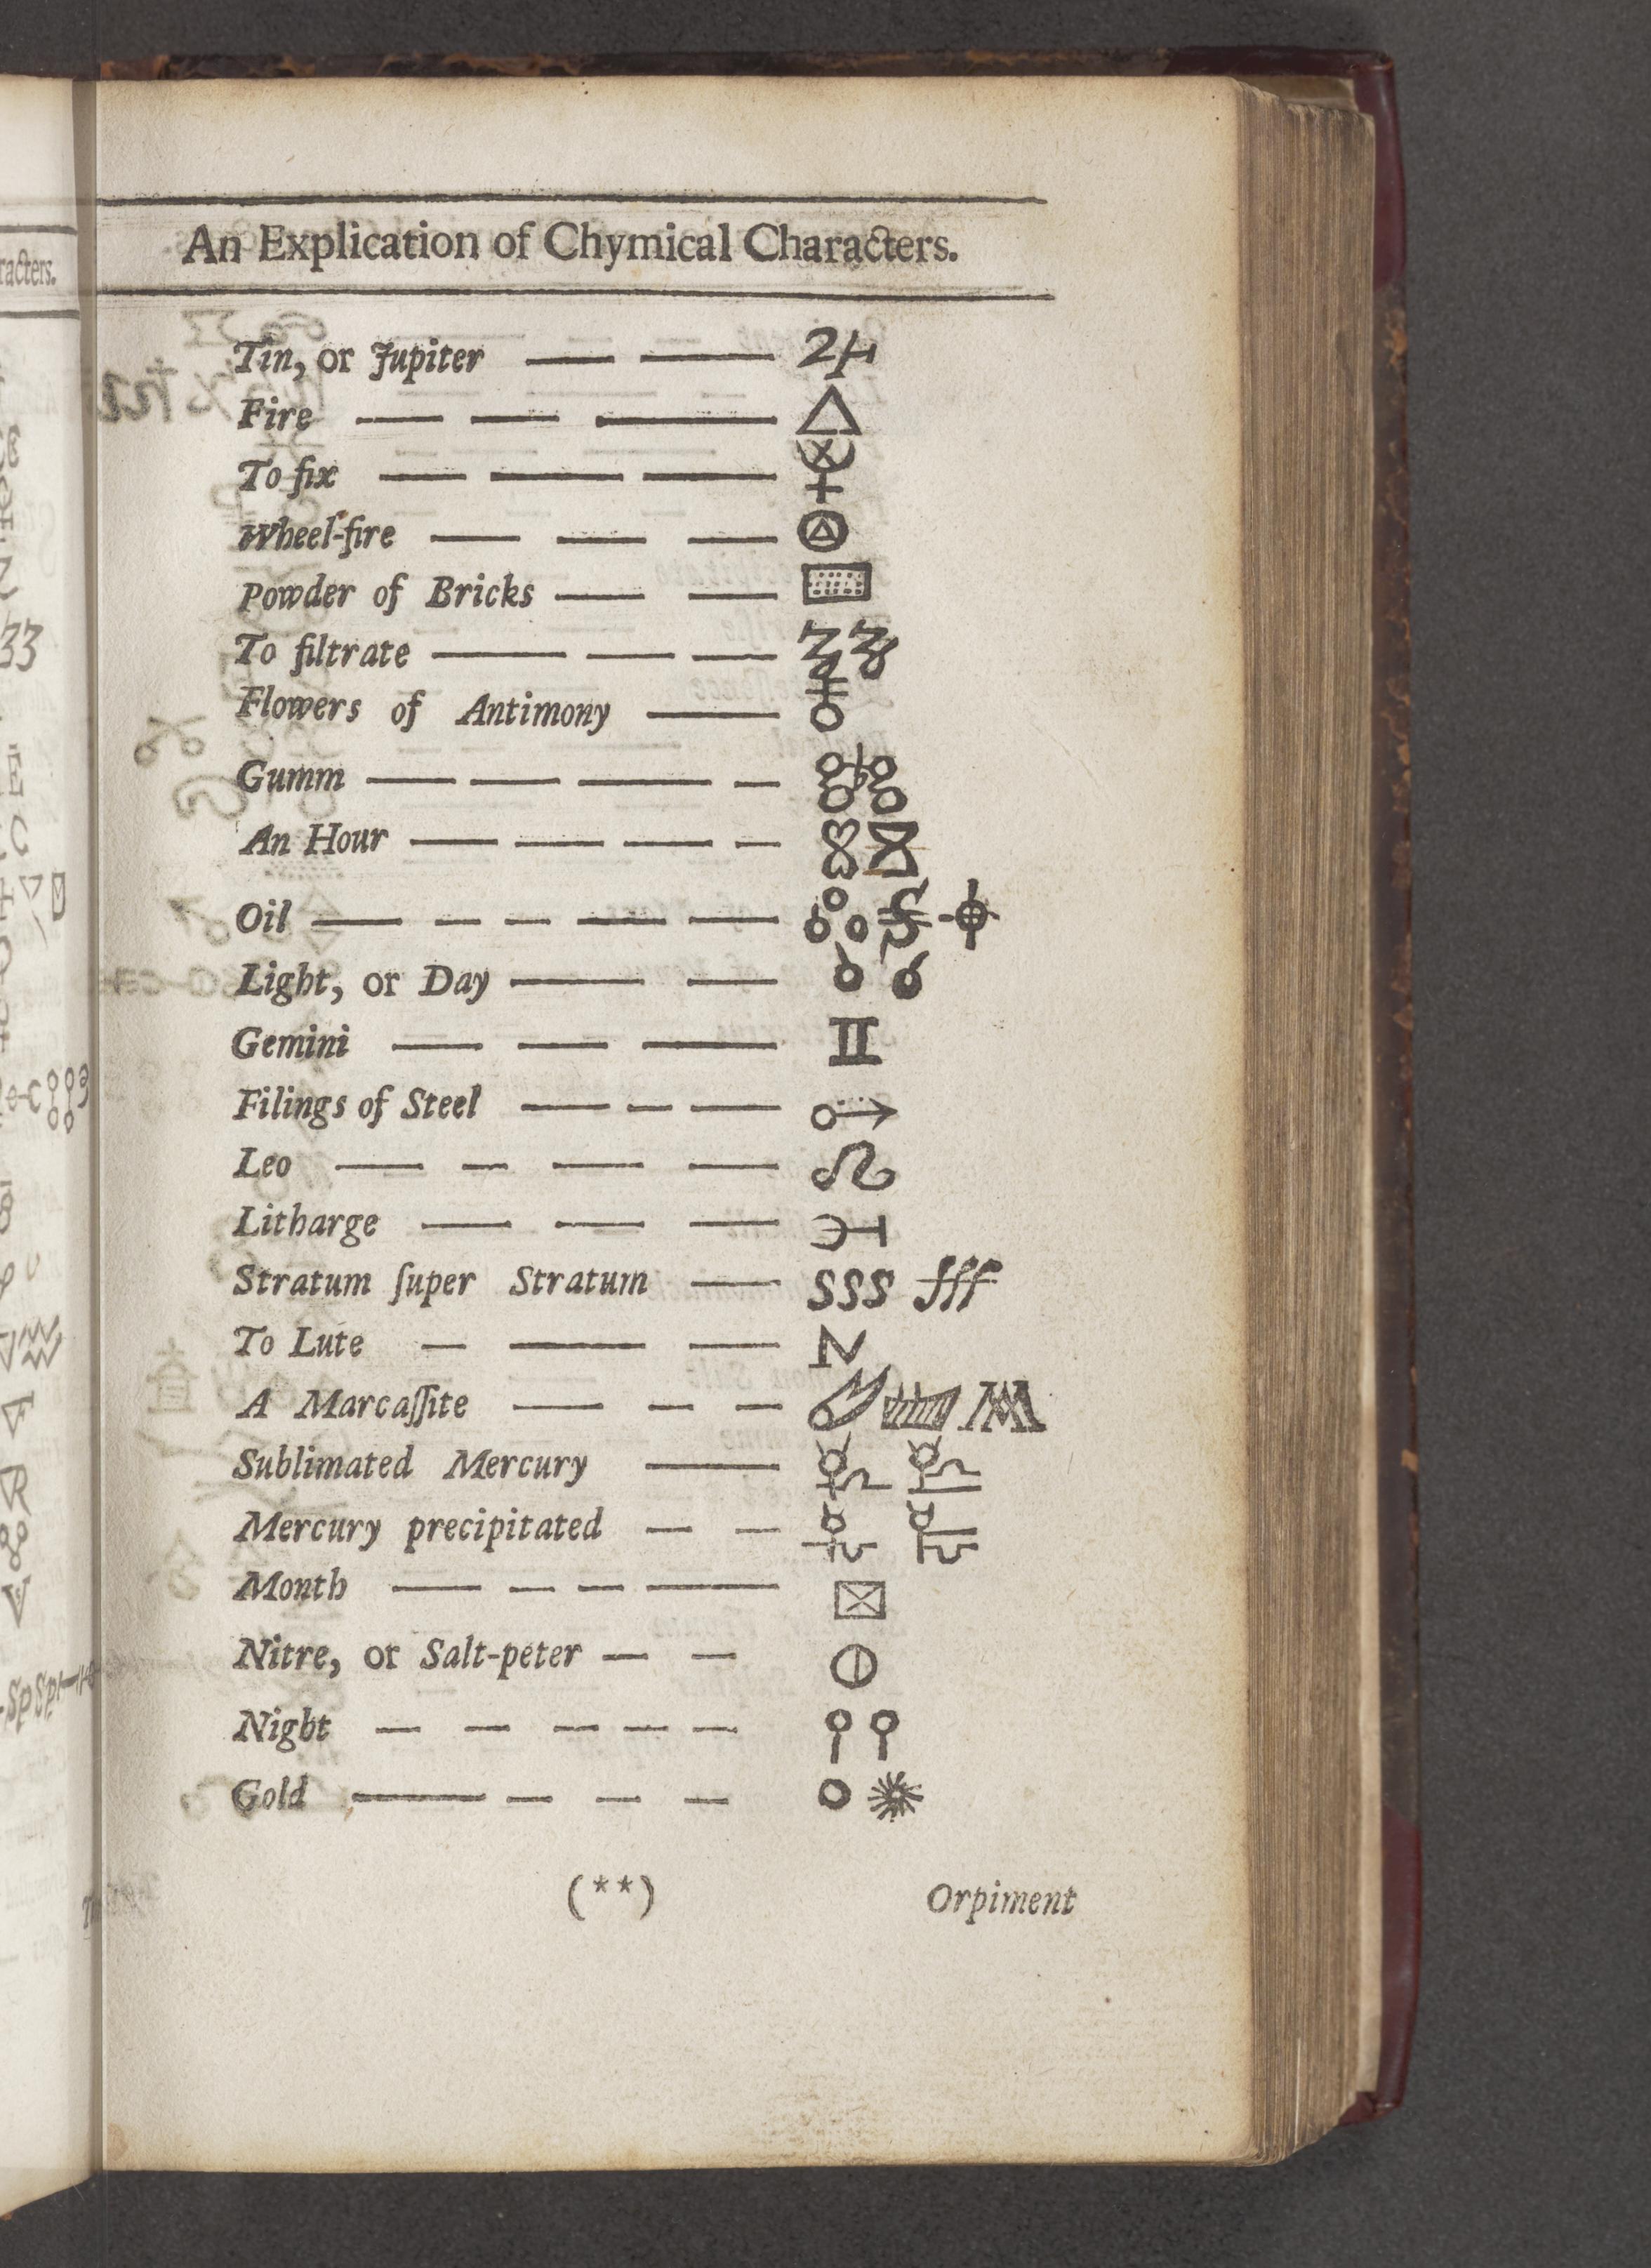 An Explication of Chymical Characters.
Tin, or Jupiter — — ♃
Fire — — — 🜂
To fix — — —
Wheel-fire — — —
Powder of Bricks — —
To filtrate — — —
Flowers of Antimony —
Gumm — — — —
An Hour — — — —
Oil — — — — —
Light, or Day — —
Gemini — — — ♊
Filings of Steel — — —
Leo — — — — ♌
Litharge — — —
Stratum ſuper Stratum — SSS ſſſ
To Lute — — —
A Marcaſſite — — —
Sublimated Mercury —
Mercury precipitated — —
Month — — — —
Nitre, or Salt-peter — — ⦶
Night — — — — —
Gold — — — —
(**) Orpiment
racters.